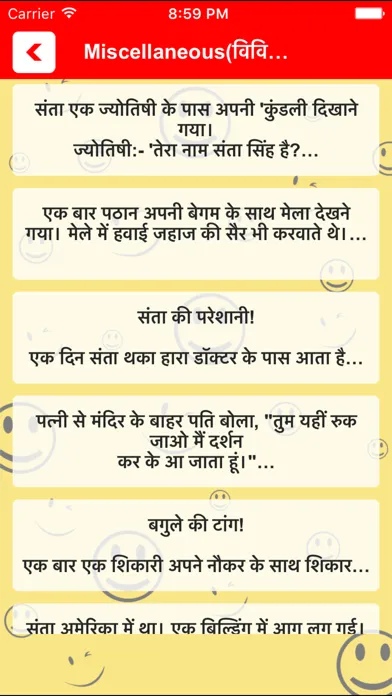 Carrier 8:59 PM
Miscellaneous(विवि...
संता एक ज्योतिषी के पास अपनी 'कुंडली दिखाने
गया।
ज्योतिषी:- 'तेरा नाम संता सिंह है?...
एक बार पठान अपनी बेगम के साथ मेला देखने
गया। मेले में हवाई जहाज की सैर भी करवाते थे।...
संता की परेशानी!
एक दिन संता थका हारा डॉक्टर के पास आता है...
पत्नी से मंदिर के बाहर पति बोला, "तुम यहीं रुक
जाओ मैं दर्शन
कर के आ जाता हूं।"...
बगुले की टांग!
एक बार एक शिकारी अपने नौकर के साथ शिकार...
संता अमेरिका में था। एक बिल्डिंग में आग लग गई।